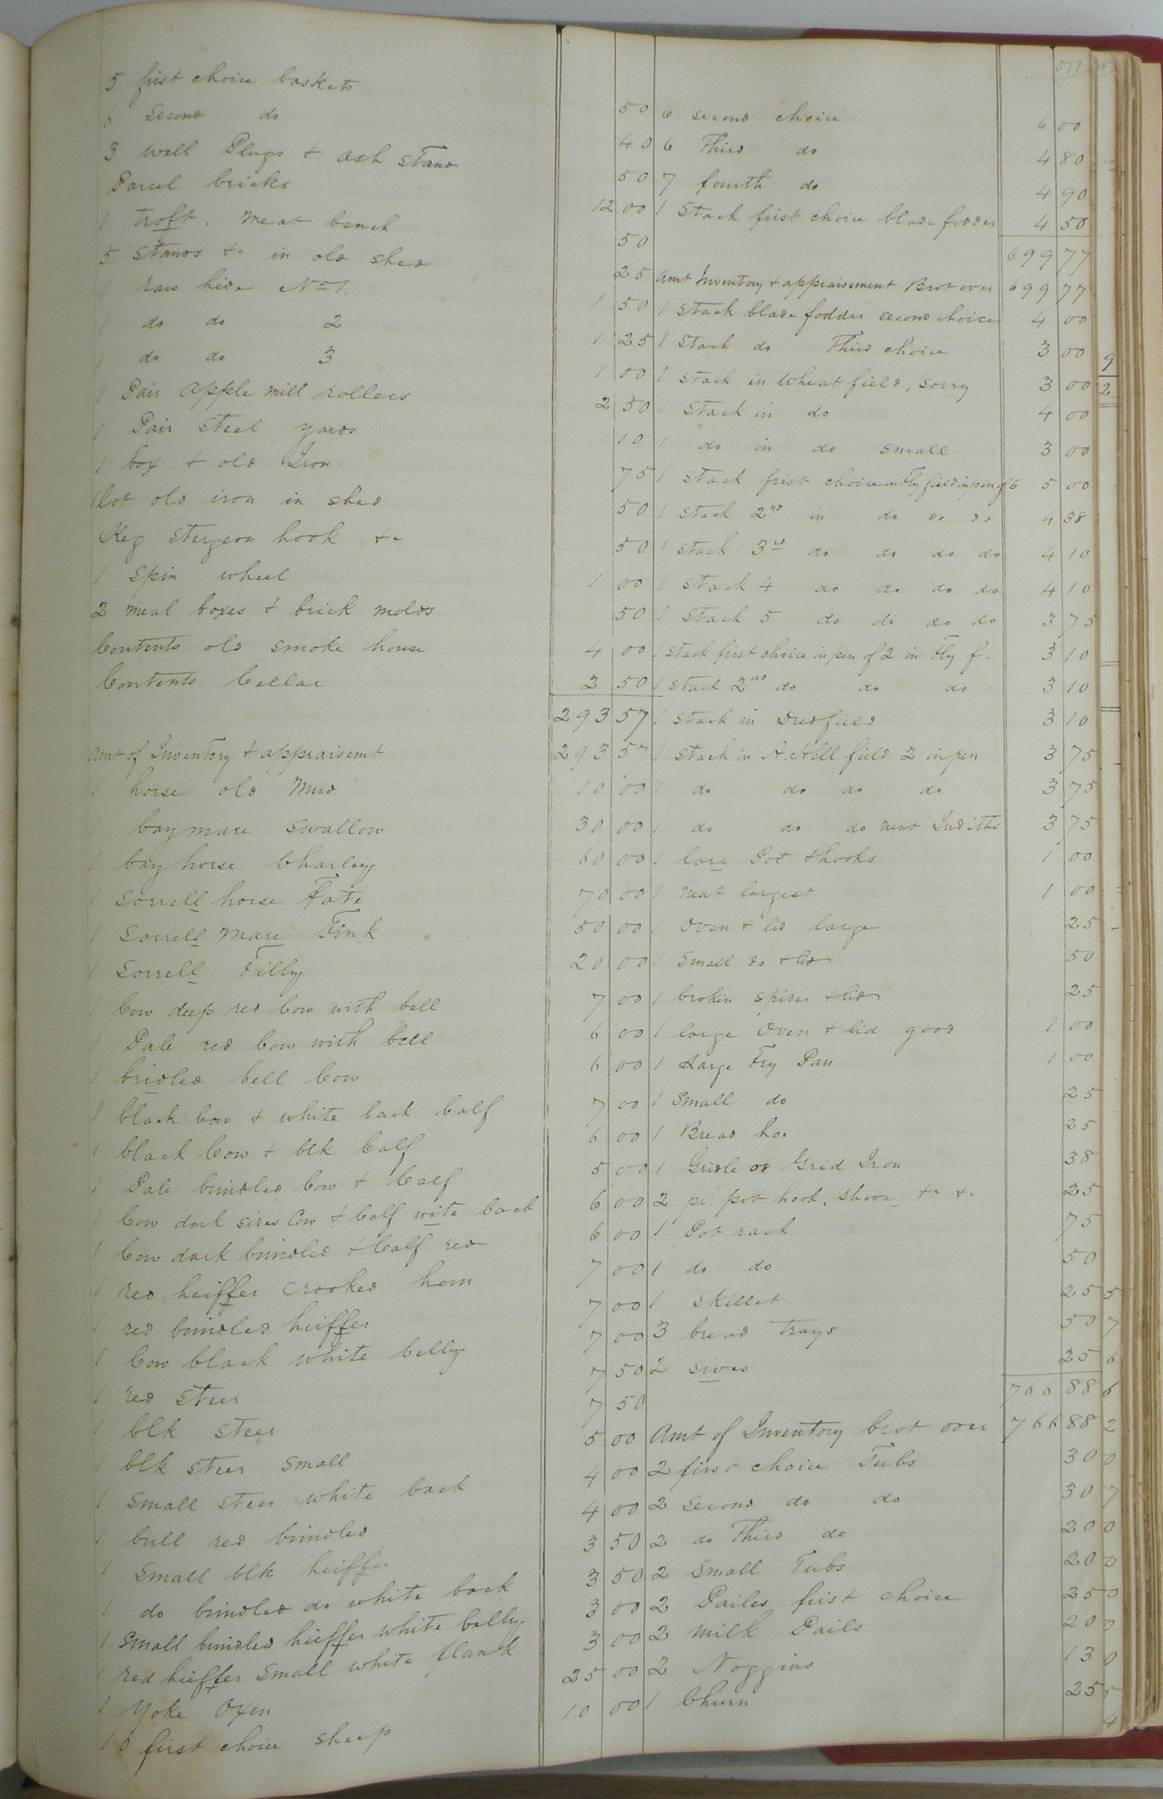 5 first choice baskets 50
6 Second do 40
3 well Plugs & ash stand 50
Parcel bricks 12 00
1 troft. meat bench 50
5 stands &c in old shed 25
1 raw hide No 1. 1 50
1 do do 2 1 25
1 do do 3 1 00
1 Pair apple mill rollers 2 50
1 Pair Steel yards 10
1 box & old Iron 75
1 lot old iron in shed 50
Keg Sturgeon hook &c 50
1 Spin wheel 1 00
2 meal boxes & brick molds 50
Contents old smoke house 4 00
Contents Cellar 2 50
293 57
Amt of Inventory & appraisemt 293 57
1 horse old Mud 10 00
1 bay mare Swallow 30 00
1 bay horse Charley 60 00
1 Sorrell horse Fate 70 00
1 Sorrell mare Fink 50 00
1 Sorrell Filly 20 00
1 Cow deep red Cow with bell 7 00
1 Pale red Cow with bell 6 00
1 brindled bell Cow 6 00
1 black Cow & white back Calf 7 00
1 black Cow & blk Calf 6 00
1 Pale brindled Cow & Calf 5 00
1 Cow dark sides Cow & Calf wite back 6 00
1 Cow dark brindled & Calf red 6 00
1 red heiffer crooked horn 7 00
1 red brindled heiffer 7 00
1 Cow black white belly 7 00
1 red steer 7 50
1 blk steer 7 50
1 blk steer small 5 00
1 small steer white back 4 00
1 bull red brindled 4 00
1 small blk heiffer 3 50
1 do brindled do white back 3 50
1 small brindled heiffer white belly 3 00
1 red heiffer small white flank 3 00
1 Yoke Oxen 25 00
10 first choice sheep 10 00
6 second choice 6 00
6 Third do 4 80
7 fourth do 4 90
1 Stack first choice blade fodder 4 50
699 77
Amt Inventory & appraisement Brot over 699 77
1 Stack blade fodder second choice 4 00
1 Stack do Third choice 3 00
1 Stack in wheat field, sorry 3 00
1 Stack in do 4 00
1 do in do small 3 00
1 Stack first choice in Fly field in pen of 5 5 00
1 Stack 2nd in do do do 4 38
1 Stack 3rd do do do do 4 10
1 Stack 4 do do do do 4 10
1 Stack 5 do do do do 3 75
1 Stack first choice in pen of 2 in Fly f. 3 10
1 Stack 2nd do do do 3 10
1 Stack in Dredfield 3 10
1 Stack in A. Hill field 3 in pen 3 75
1 do do do do 3 75
1 do do do near Judiths 3 75
1 lare Pot & hooks 1 00
1 next largest 1 00
1 Oven & lid large 25
1 Small do & lid 50
1 broken spider & lid 25
1 large Oven & lid good 1 00
1 Large Fry Pan 1 00
1 Small do 25
1 Bread hoe 25
1 Gridle or Grid Iron 38
2 pr pot hook, shove &c &c 25
1 Pot rack 75
1 do do 50
1 Skillet 25
3 bread trays 50
2 sives 25
766 88
Amt of Inventory brot over 766 88
2 first choice Tubs 30
2 Second do do 30
2 do Third do 20
2 Small Tubs 20
2 Pailes first choice 25
2 milk Pails 20
2 Noggins 13
1 Churn 25